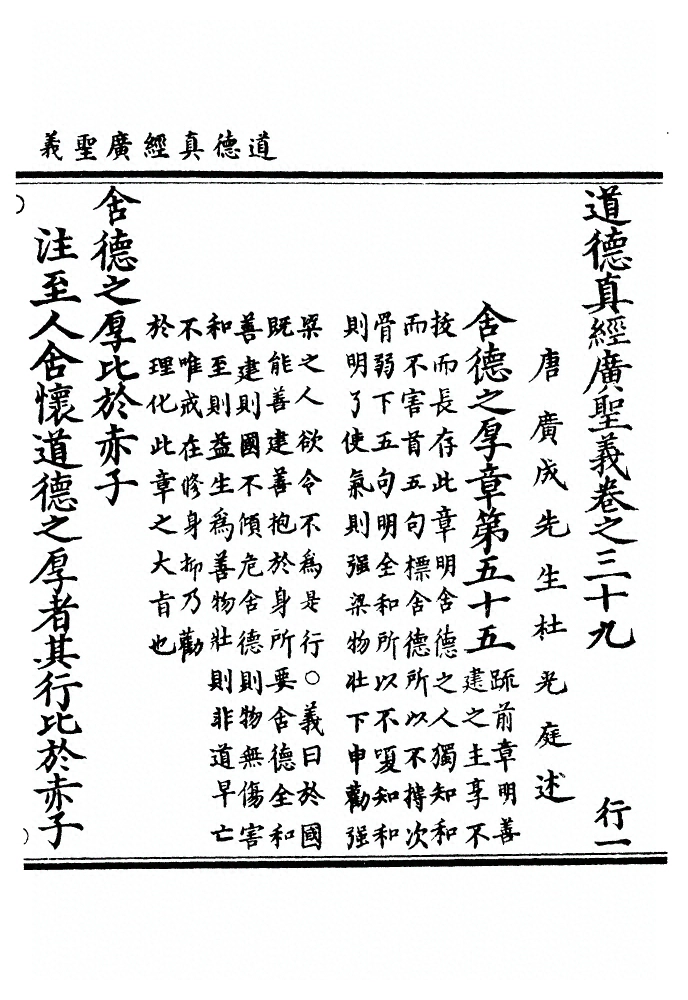 道德真經廣聖義
道德真經廣聖義卷之三十九 行一
唐廣成先生杜光庭述
含德之厚章第五十五 疏前章明善
建之主享不
拔而長存此章明含德之人獨知和
而不害首五句標含德所以不搏次
骨弱下五句明全和所以不嗄知和
則明了使氣則强梁物壯下申勸强
梁之人欲令不爲是行○義曰於國
既能善建善抱於身所要含德全和
善建則國不傾危含德則物無傷害
和至則益生爲善物壯則非道早亡
不唯戒在修身抑乃勸
於理化此章之大旨也
含德之厚比於赤子
注至人含懷道德之厚者其行比於赤子